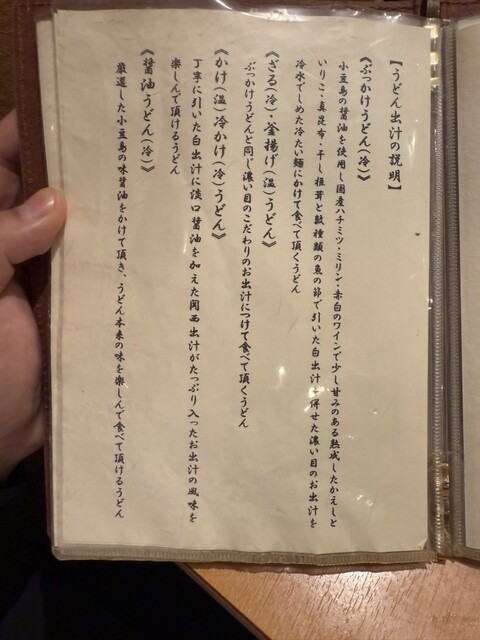 【うどん出汁の説明】
《ぶっかけうどん(冷)》
小豆島の醤油を使用し国産ハチミツ・ミリン・赤白のワインで少し甘みのある熟成したかえしと
いりこ・真昆布・干し椎茸と数種類の魚の節で引いた白出汁を併せた濃い目のお出汁を
冷水でしめた冷たい麺にかけて食べて頂くうどん
《ざる(冷)・釜揚げ(温)うどん》
ぶっかけうどんと同じ濃い目のこだわりのお出汁につけて食べて頂くうどん
《かけ(温)冷かけ(冷)うどん》
丁寧に引いた白出汁に淡口醤油を加えた関西出汁がたっぷり入ったお出汁の風味を
楽しんで頂けるうどん
《醤油うどん(冷)》
厳選した小豆島の味醤油をかけて頂き、うどん本来の味を楽しんで食べて頂けるうどん